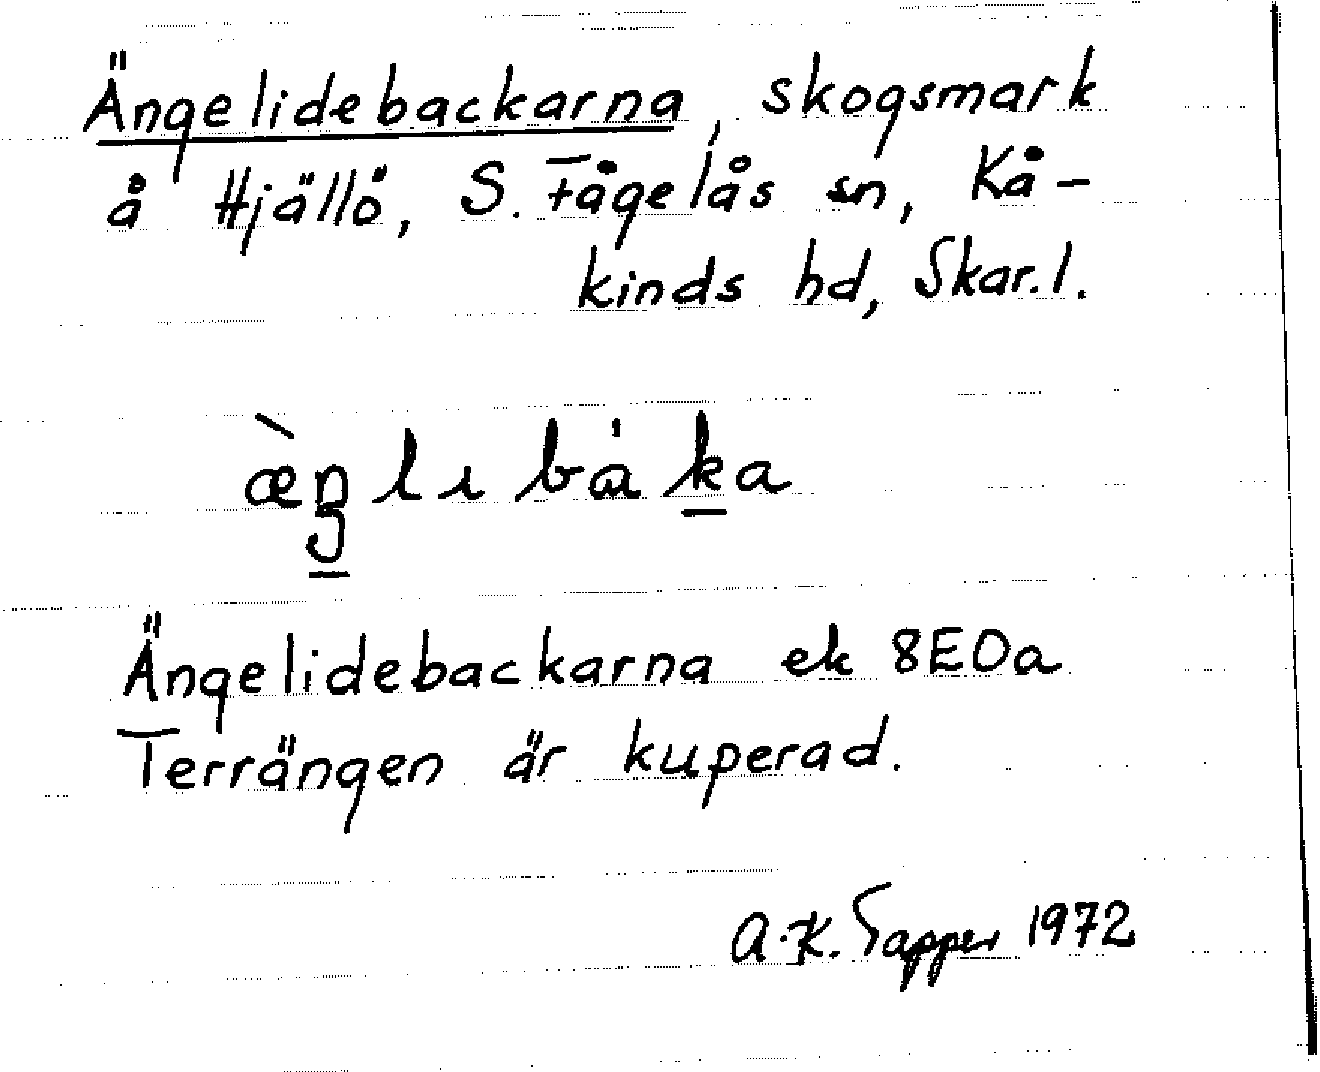 Ängelidebackarna, skogsmark
å Hjällö, S. Fågelås sn, Kå-
kinds hd, Skar. l.
æ̀ŋlιbáka
Ängelidebackarna ek 8E0a
Terrängen är kuperad.
A.K. Tapper 1972